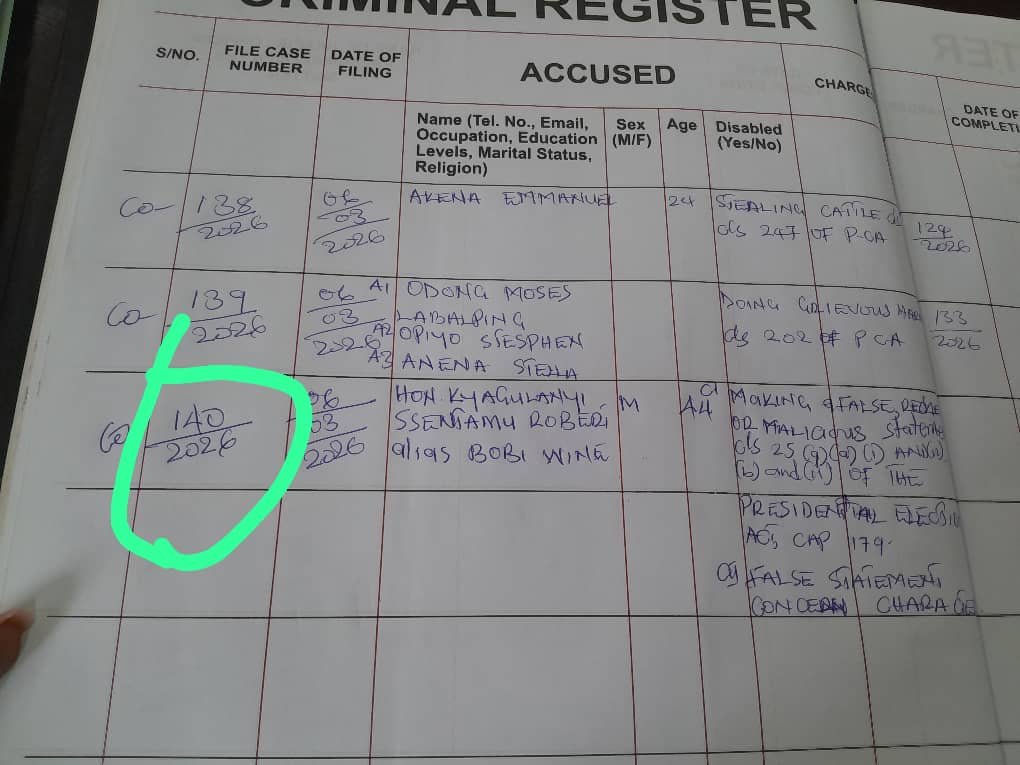 CRIMINAL REGISTER
S/NO.
FILE CASE
NUMBER
DATE OF
FILING
ACCUSED
CHARGE
DATE OF
COMPLETI
Name (Tel. No., Email,
Occupation, Education
Levels, Marital Status,
Religion)
Sex
(M/F)
Age
Disabled
(Yes/No)
Co- 138 06 AKENA EMMANUEL 24 STEALING CATTLE
2026 03 247 OF PCA 124
2026 2026
Co 139 06 A1 ODONG MOSES DOING GRIEVOUS
2026 03 LABALPING 133
2026 A2 OPIYO STESPHEN 202 of PCA 2026
A3 ANENA STELLA
140 06 HON. KYAGULANYI M A4 MAKING FALSE,
2026 03 SSENTAMU ROBERT OR MALICIOUS Stateme
2026 alias BOBI WINE 25 (a) (i) AND (ii)
(b) and (ii) OF THE
PRESIDENTIAL ELECTIO
ACT, CAP 179.
FALSE STATEMENT
CONCERN CHARACTE